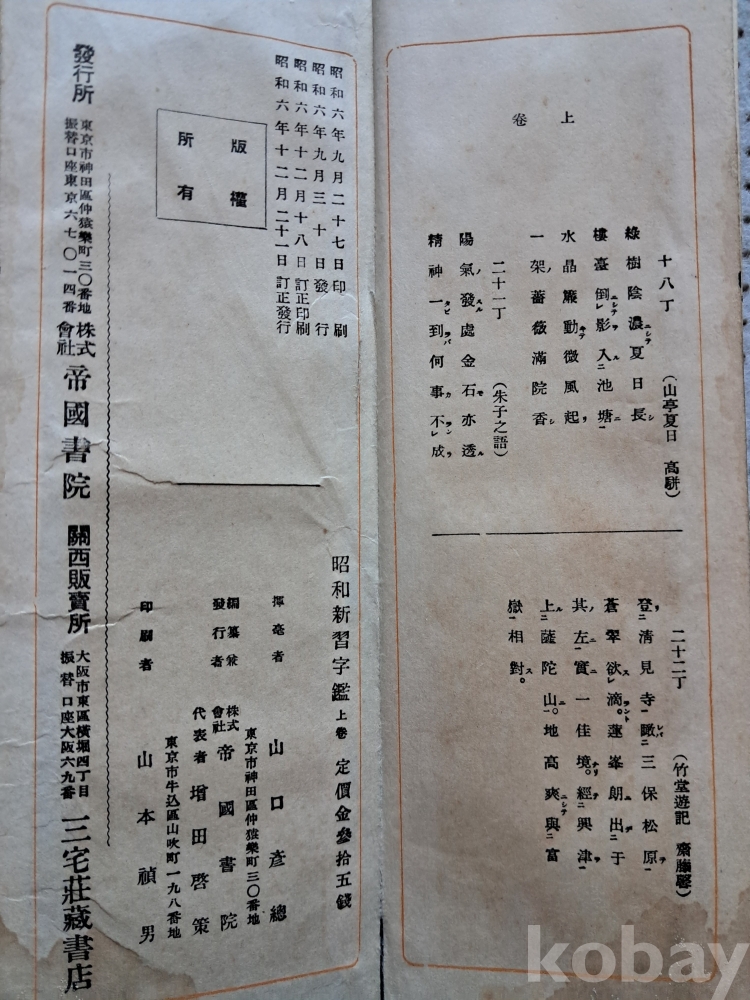 上卷
十八丁
(山亭夏日 高駢)
綠樹陰濃ニシテ夏日長シ
樓臺倒ニシテレ影ヲ入ルニ池塘ニ一
水晶簾動キテ微風起リ
一架ノ薔薇滿院香シ
二十一丁
(朱子之語)
陽氣ノ發スル處金石モ亦透ル
精神一タビ到ラバ何事カ不ランレ成ラ
二十二丁
(竹堂遊記 齋藤馨)
登リニ清見寺ニ一瞰レバニ三保松原ヲ一
蒼翠欲スレ滴ラント。蓮峯朗出ニデテ于
其ノ左ニ一實ニ一佳境ナリ。經テニ興津ヲ一
上ルニ薩陀山ニ一。地高爽ニシテ與ニ富
嶽一相對ス。
昭和六年九月二十七日印刷
昭和六年九月三十日發行
昭和六年十二月十八日訂正印刷
昭和六年十二月二十一日訂正發行
版權
所有
昭和新習字鑑 上卷 定價金參拾五錢
揮毫者 山口彥總
東京市神田區仲猿樂町三〇番地
編纂兼發行者 株式會社 帝國書院
代表者 增田啓策
東京市牛込區山吹町一九八番地
印刷者 山本禎男
發行所 東京市神田區仲猿樂町三〇番地
振替口座東京六七〇一四番
株式會社 帝國書院
關西販賣所 大阪市東區橫堀四丁目
振替口座大阪六九番
三宅莊藏書店
kobay